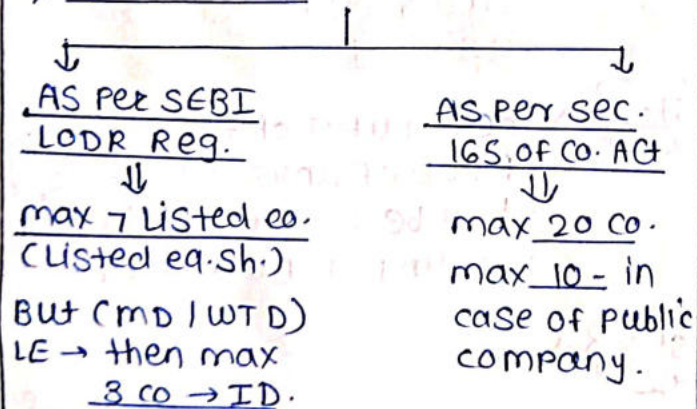 As Per SEBI
LODR Reg.
max 7 Listed co.
(Listed eq.sh.)
But (MD / WTD)
LE → then max
3 co → ID.
As per sec.
165. of co. Act
max 20 co.
max 10 - in
case of public
company.